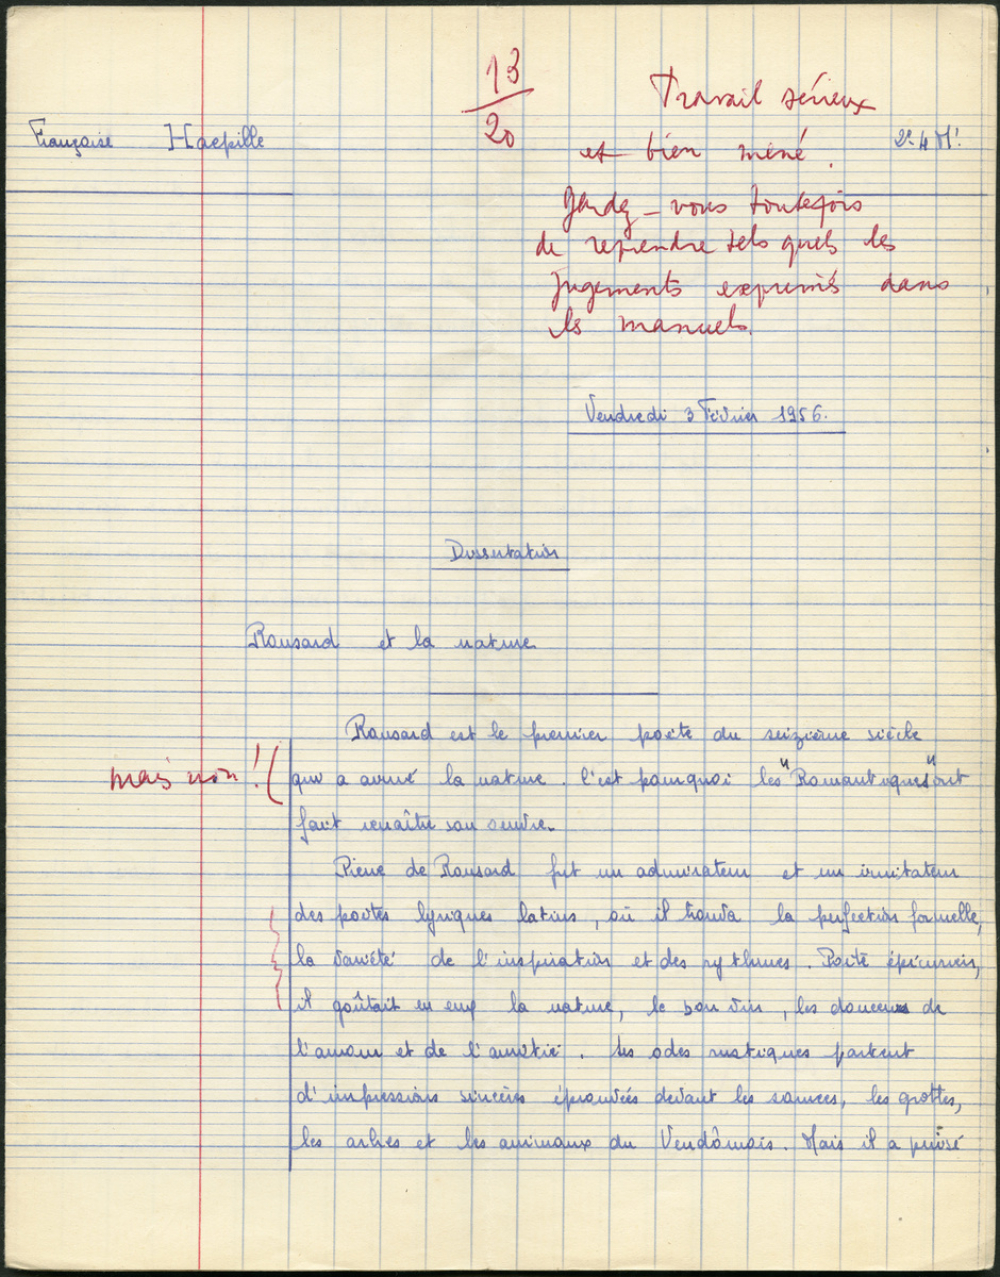 13
20
Travail sérieux
et bien mené.
Gardez-vous toutefois
de reprendre tels quels les
jugements exprimés dans
les manuels.
Françoise
2e 4 M'
Vendredi 3 Février 1956.
Dissertation
Ronsard et la nature
Ronsard est le premier poète du seizième siècle
mais non! (
qui a aimé la nature. C'est pourquoi les "Romantiques" ont
fait renaître son œuvre.
Pierre de Ronsard fut un admirateur et un imitateur
des poètes lyriques latins, où il trouva la perfection formelle,
la variété de l'inspiration et des rythmes. Poète épicurien,
il goûtait en eux la nature, le bon vin, les douceurs de
l'amour et de l'amitié. Ses odes rustiques partent
d'impressions sincères éprouvées devant les sources, les grottes,
les arbres et les animaux du Vendômois. Mais il a puisé